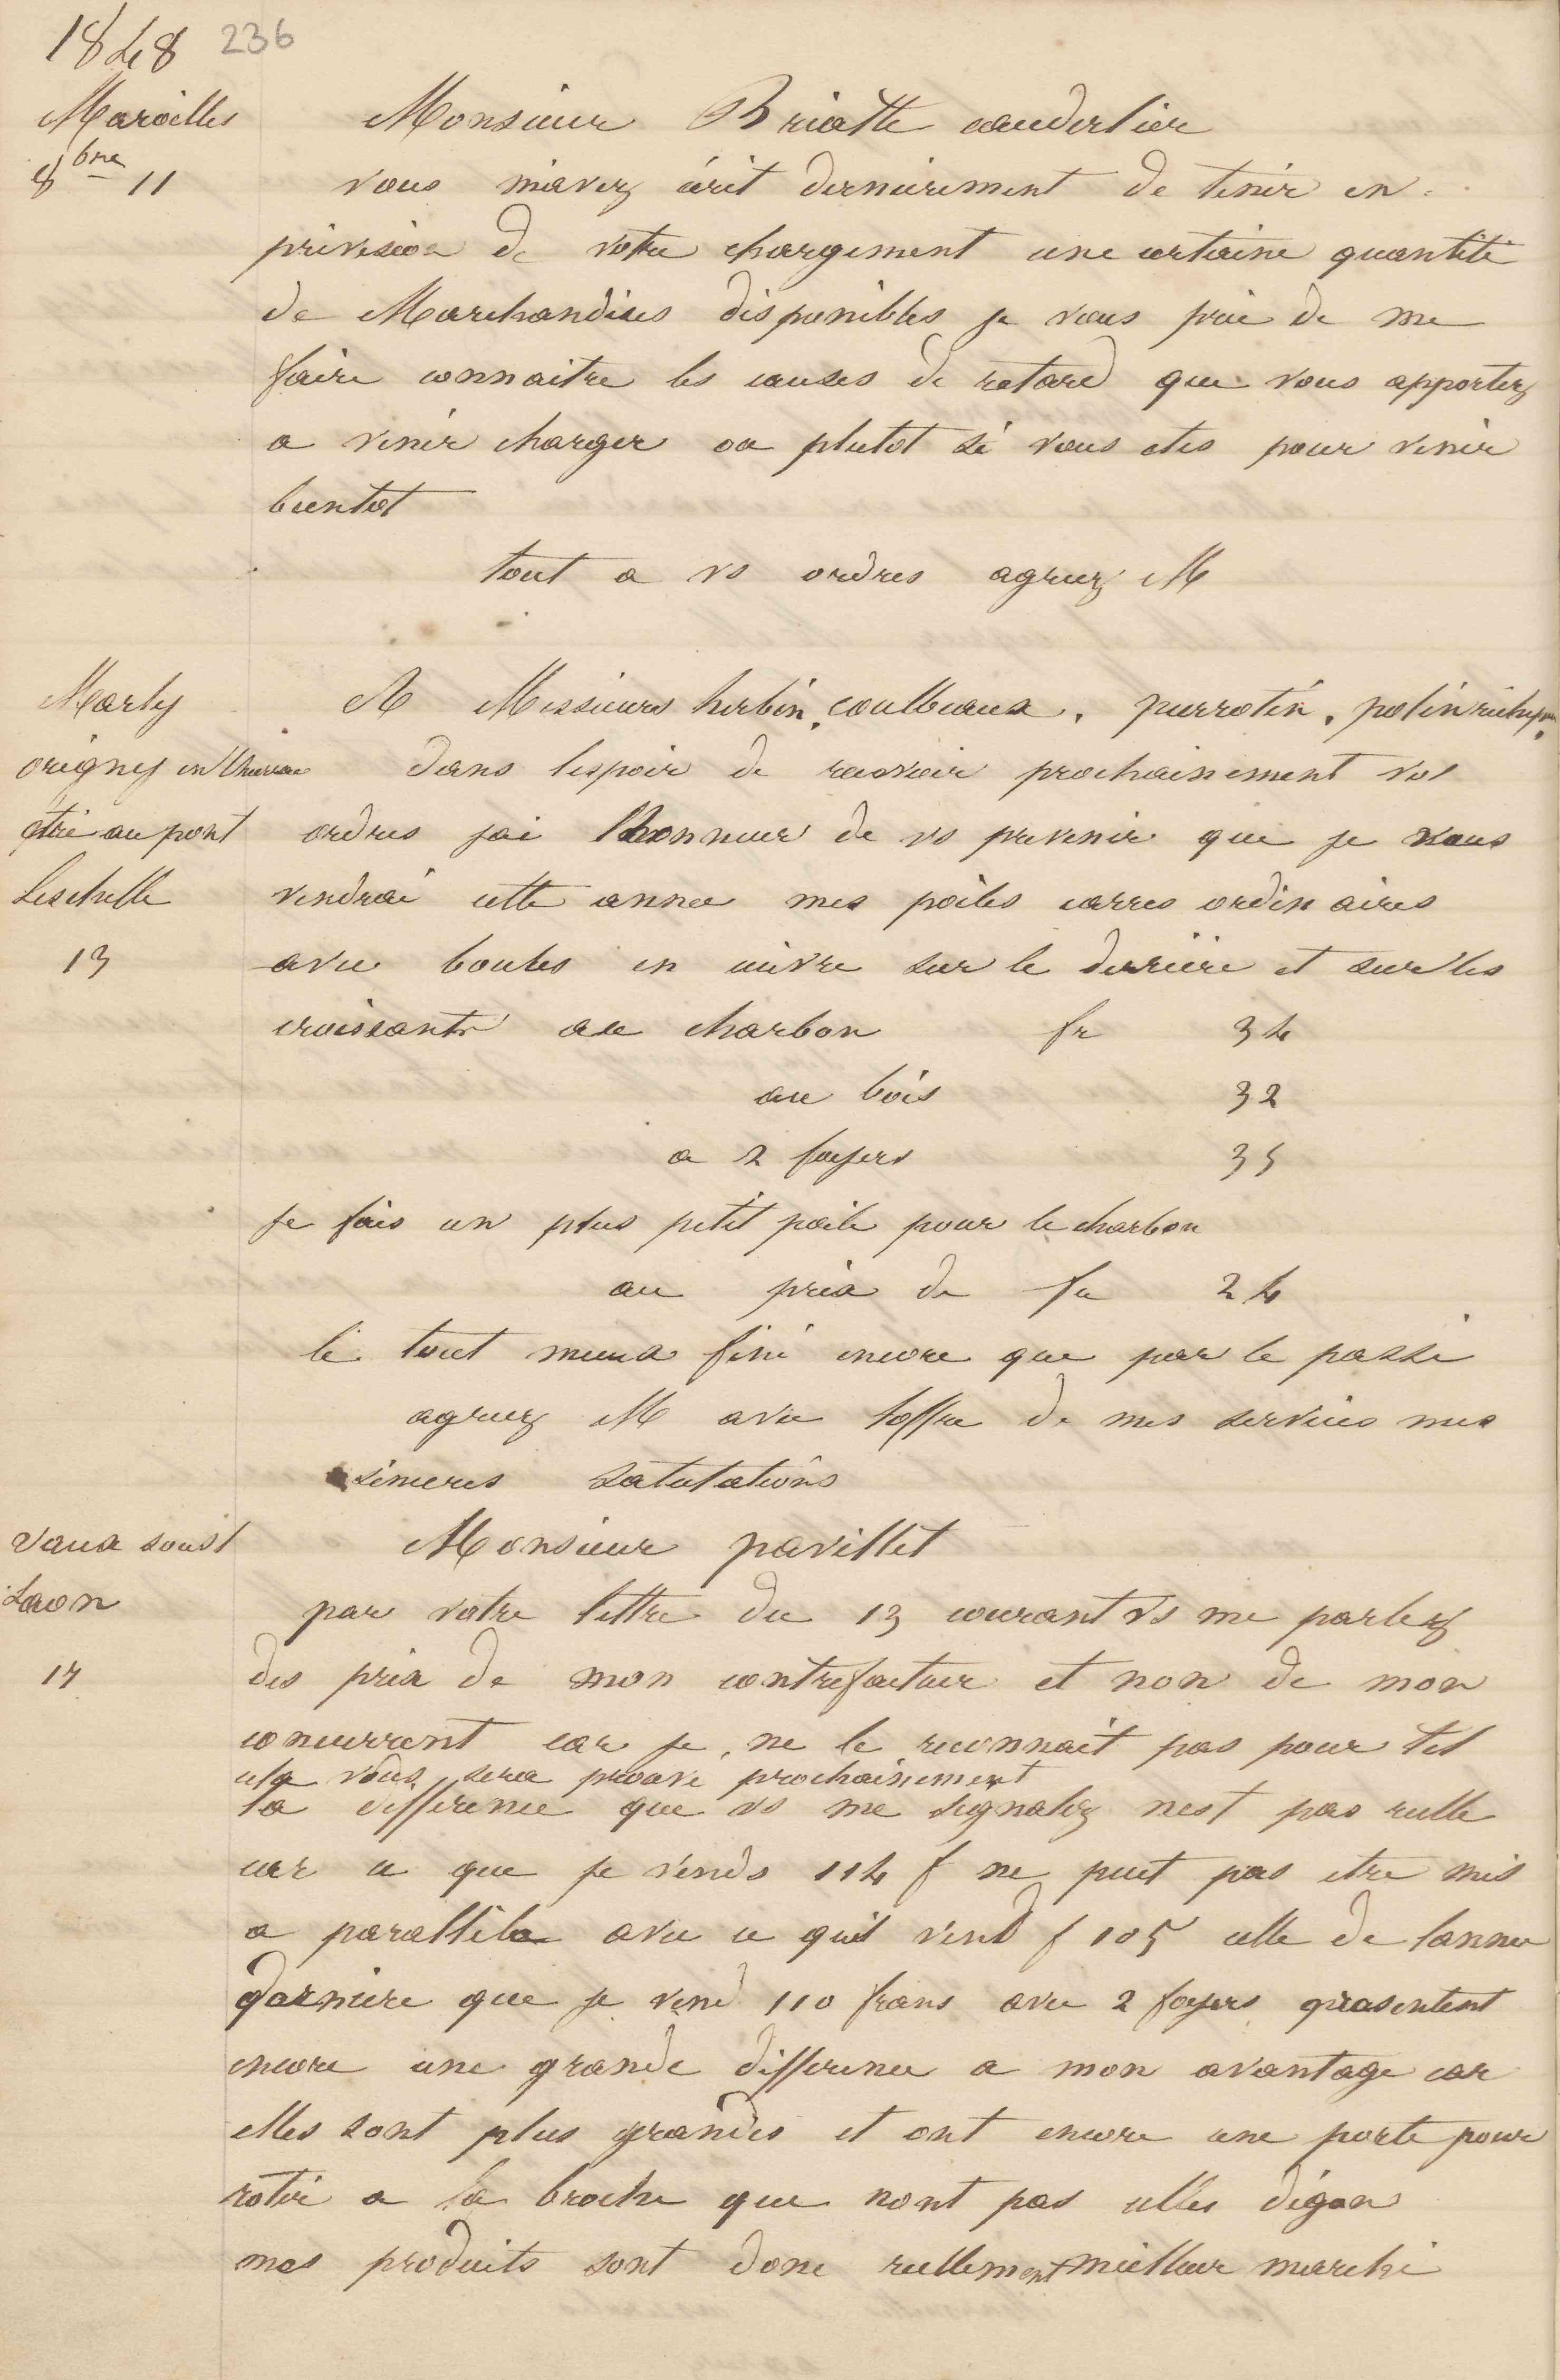 1848 236
Maroilles
8bre 11
Monsieur Briatte cauderlier
vous mavez écrit dernierement de tenir en
prévision de votre chargement une certaine quantité
de Marchandises disponibles je vous prie de me
faire connaitre les causes de retard que vous apportez
a venir charger ou plutot si vous etes pour venir
bientot
tout a vs ordres agreez M
Marly
origny en thierrache
étrée au pont
Leschelle
13
A Messieurs herbin, coulbeaux, pierrotin, potin
dans lespoir de recevoir prochainement vos
ordres jai lhonneur de vs prevenir que je vous
vendrai cette annee mes poêles carres ordinaires
avec boules en cuivre sur le derrière et sur les
croissants au charbon fr 34
au bois 32
a 2 foyers 35
Je fais un plus petit poêle pour le charbon
au prix de fr 24
le tout mieux fini encore que par le passé
agreez M avec loffre de mes services mes
sinceres salutations
vaux sous
Laon
17
Monsieur pavillet
par votre lettre du 13 courant vs me parlez
des prix de mon contrefacteur et non de mon
concurrent car je ne le reconnait pas pour tel
cela vous sera prouvé prochainement
la difference que vs me signalez nest pas reelle
car ce que je vends 114 f ne peut pas etre mis
a parallèle avec ce quil vend f 105 celle de lannee
derniere que je vend 110 francs avec 2 foyers presentent
encore une grande difference a mon avantage car
elles sont plus grandes et ont encore une porte pour
rotir a la broche que nont pas celles dégon
mes produits sont donc reellement meilleur marché